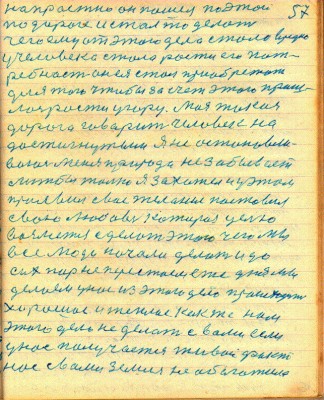 57
напрасно он пошел по этой
по дороге и стал то делать
чего ему от этого дела стало вредно
у человека стала рости его пот-
ребность он ее стал приобретать
для того чтобы за счет этого
рости у гору. Моя такая
дорога говорит человек на
достигнутым я не остановил
меня природа не забывает
только я захотел и этом
проявил свое желание поставил
свою любовь которая целю
является сделать этого чего мы
все люди начали делать и до
сих пор не престали еще
делаем у нас из этого дело происходит
хорошое и теплое как же нам
этого дело не делать с вами если
у нас получается живой факт
нас с вами земля не обижает